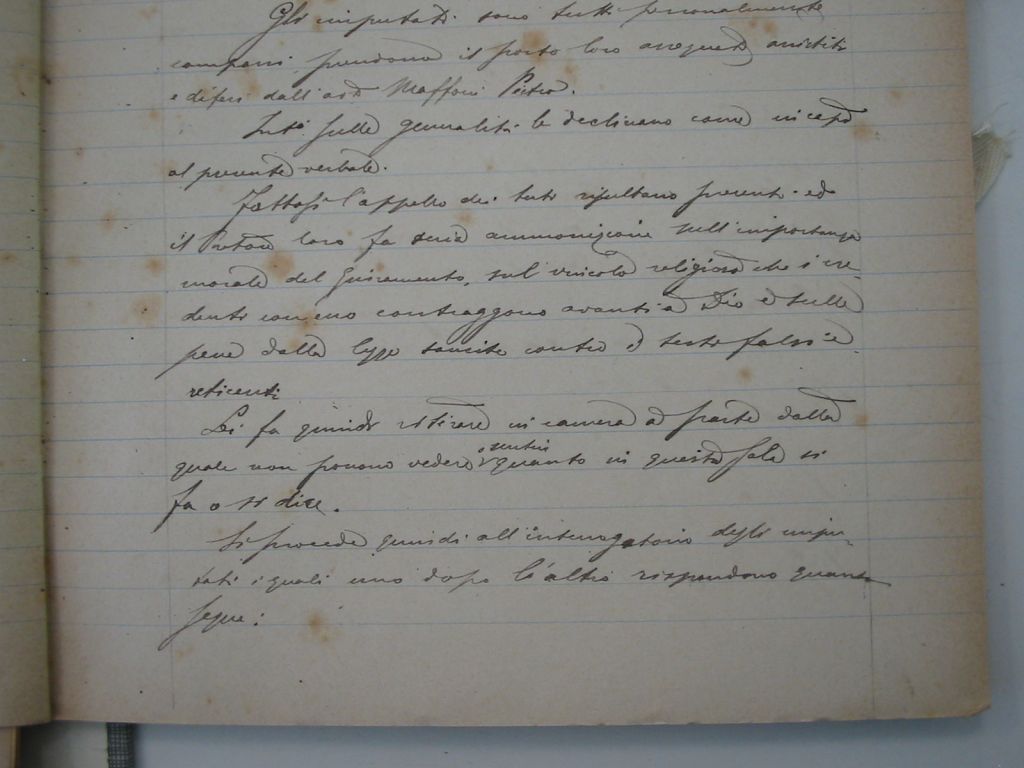 Gli imputati sono tutti personalmente
comparsi prendono il posto loro assegnato assistiti
e difesi dall'avv Maffoni Pietro.
sulle generalità le declinano come in capo
al presente verbale.
Fattosi l'appello dei testi risultano presenti ed
il Pretore loro fa seria ammonizione sull'importanza
morale del Giuramento, sul vincolo religioso che i cre-
denti con esso contraggono avanti a Dio e sulle
pene dalla legge sancite contro i testi falsi e
reticenti
Li fa quindi ritirare in camera a parte dalla
quale non possono vedere o sentire quanto in questa sala si
fa o si dice.
Si procede quindi all'interrogatorio degli impu-
tati i quali uno dopo l'altro rispondono quanto
segue: